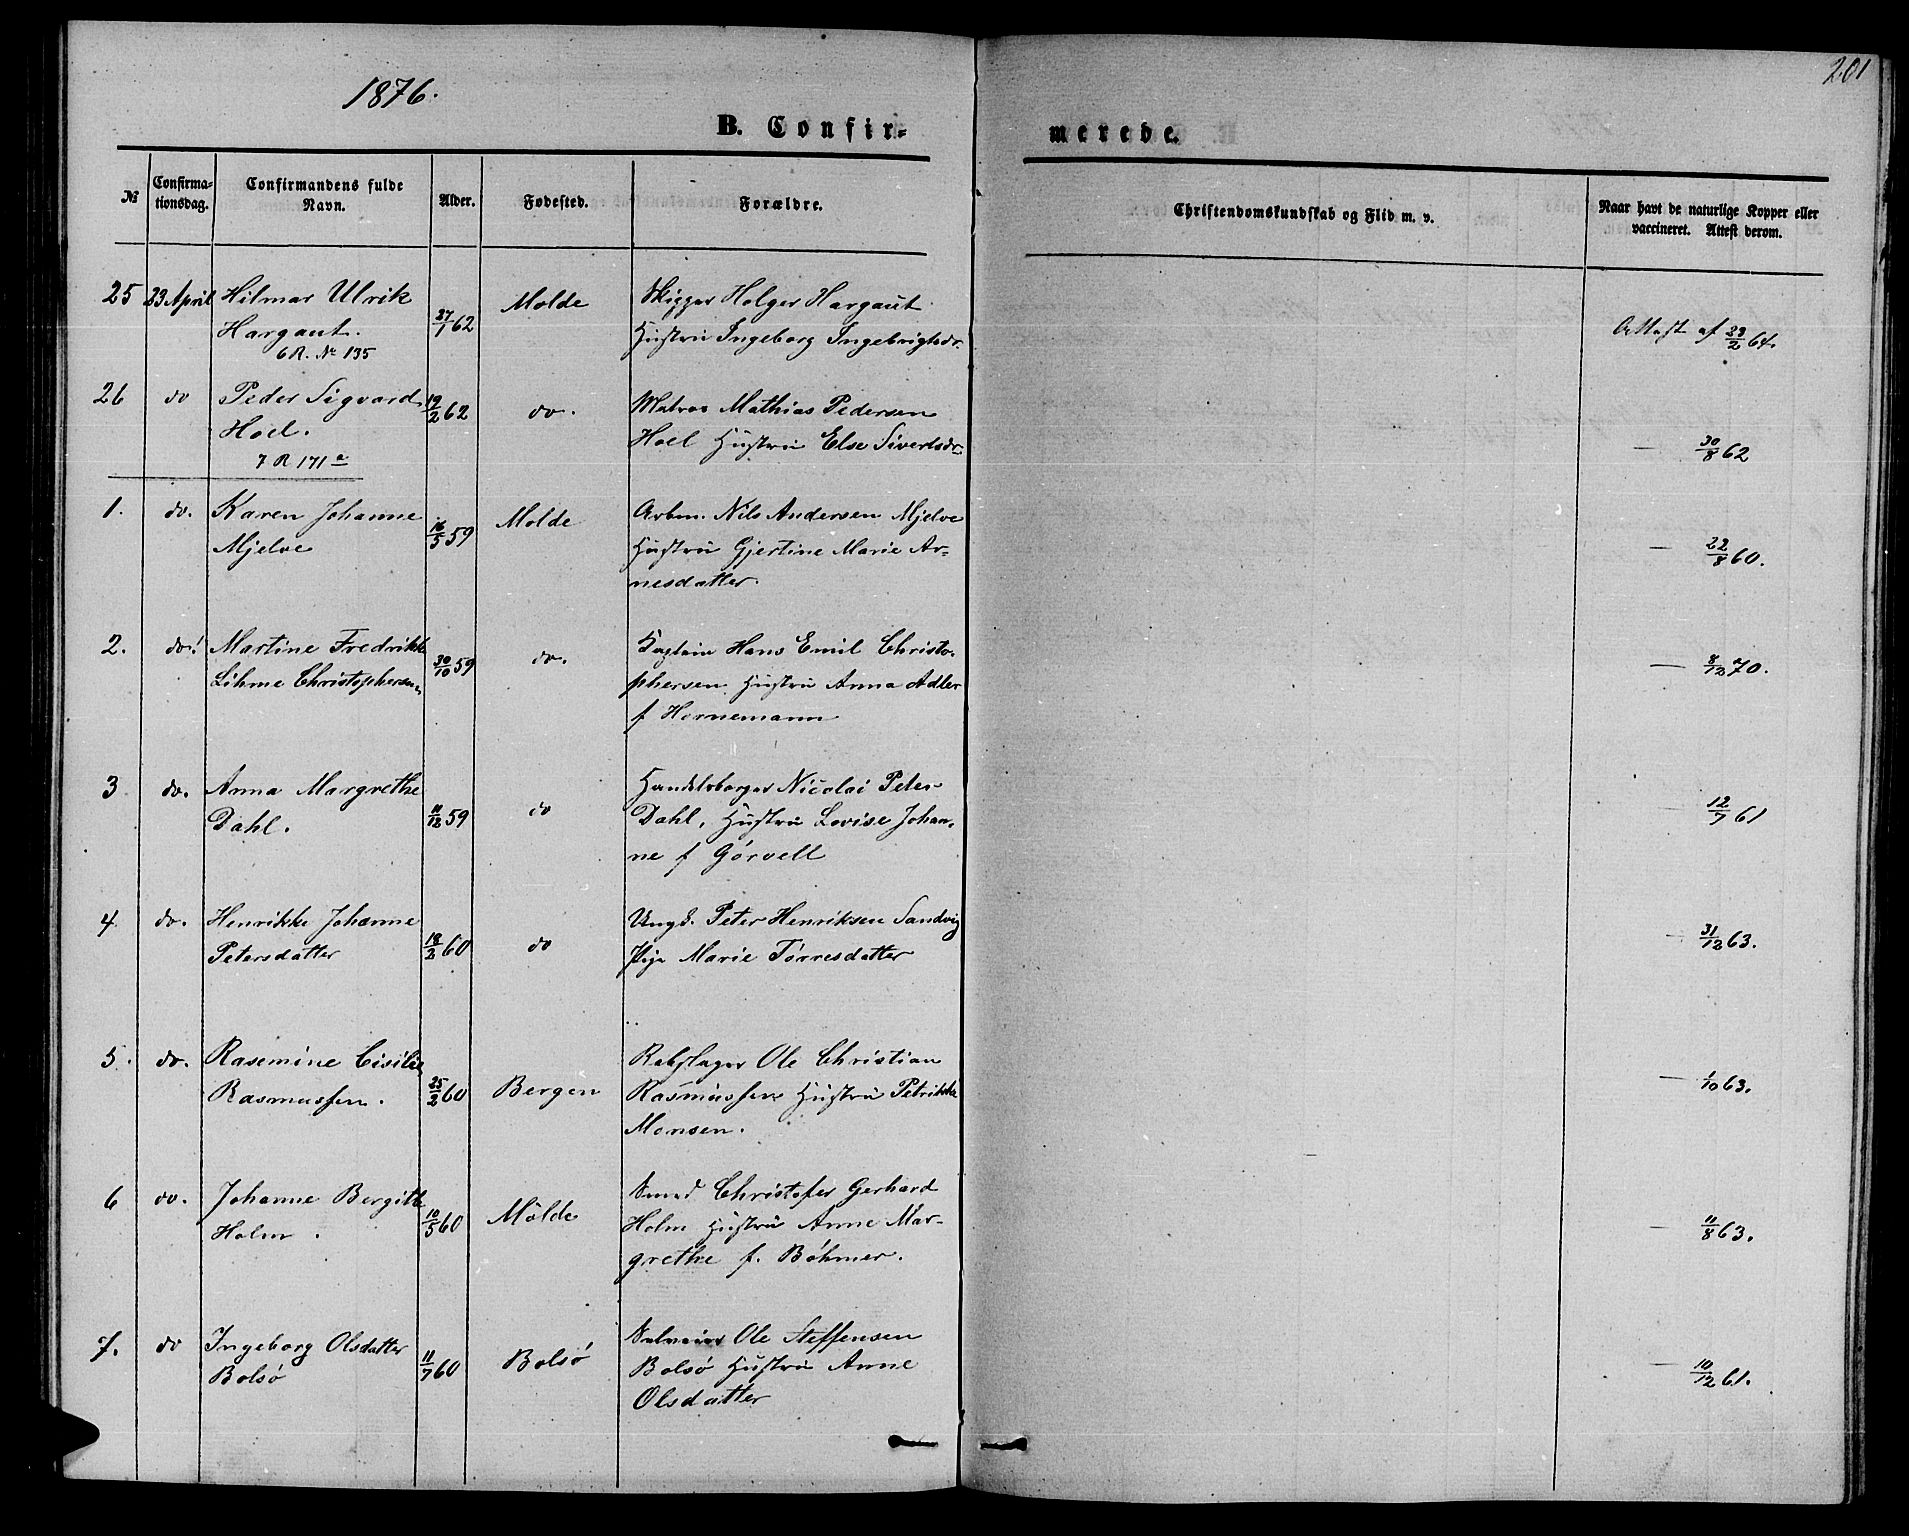 1876.
201
B. Confir=
merede.
№
Confirma-
tionsdag.
Confirmandens fulde
Navn.
Alder.
Fødested.
Forældre.
Christendomskundskab og Flid m. v.
Naar havt de naturlige Kopper eller
vaccineret. Attest derom.
25 23 April Hilmar Ulrik 27/1 62 Molde Skipper Holger Hargaut Attest af 23/2 64.
Hargaut. Hustru Ingeborg Ingebrigtsdr.
6 R. № 135
26 do Peder Sigvard 19/2 62 do. Matros Mathias Pedersen
Hoel. Hoel Hustru Else Sivertsdr. — 30/8 62
7 R 171 a
1. do. Karen Johanne 16/5 59 Molde Arbm. Nils Andersen Mjelve
Mjelve Hustru Gjertine Marie Ar- — 22/8 60.
nesdatter.
2. do. Martine Fredrikke 30/10 59 do. Kaptein Hans Emil Christo- — 8/12 70.
Lihme Christophersen. phersen Hustru Anna Adler
f Hornemann
3 do. Anna Margrethe 11/12 59 do Handelsborger Nicolai Peter
Dahl. Dahl, Hustru Lovise Johan- — 12/7 61
ne f Gørvell
4 do. Henrikke Johanne 18/2 60 do Ungk. Peter Henriksen Sandvig — 31/12 63.
Petersdatter Pige Marie Tørresdatter
5. do. Rasemine Cisilie 25/2 60 Bergen Rebslager Ole Christian — 1/10 63.
Rasmussen. Rasmussen Hustru Petrikke
Monsen.
6 do. Johanne Bergitte 10/5 60 Molde Smed Christofer Gerhard
Holm. Holm Hustru Anne Mar- — 11/8 63.
grethe f. Böhmer.
7. do Ingeborg Olsdatter 11/7 60 Bolsø Ole Steffensen
Bolsø Bolsø Hustru Anne — 10/12 61.
Olsdatter